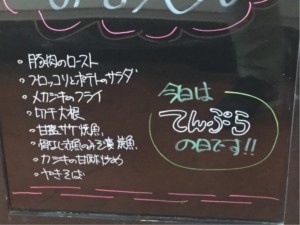 ・豚肉のロースト
・ブロッコリとポテトのサラダ
・メカジキのフライ
・切干大根
・甘塩サケ焼魚
・赤魚のみそ漬 焼魚
・カジキの甘酢炒め
・やきそば
今日は
てんぷら
の日です!!